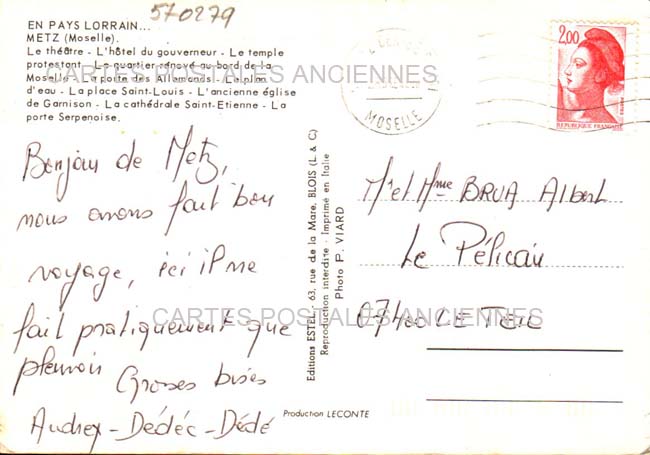 570279
EN PAYS LORRAIN...
METZ (Moselle).
Le théâtre - L'hôtel du gouverneur - Le temple
protestant - Le quartier rénové au bord de la
Moselle - La porte des Allemands - Le plan
d'eau - La place Saint-Louis - L'ancienne église
de Garnison - La cathédrale Saint-Etienne - La
porte Serpenoise.
CARTES POSTALES ANCIENNES
Bonjour de Metz,
nous avons fait bon
voyage, ici il ne
fait pratiquement que
pleuvoir Grosses bises
Audrey - Dédéc - Dédé
Editions ESTEL - 63, rue de la Mare, BLOIS (L & C)
Reproduction interdite - Imprimé en Italie
Photo P. VIARD
Production LECONTE
MOSELLE
2,00
REPUBLIQUE FRANÇAISE
Mr et Mme BRUA Albert
Le Pélican
07400 LE TEIL
CARTES POSTALES ANCIENNES